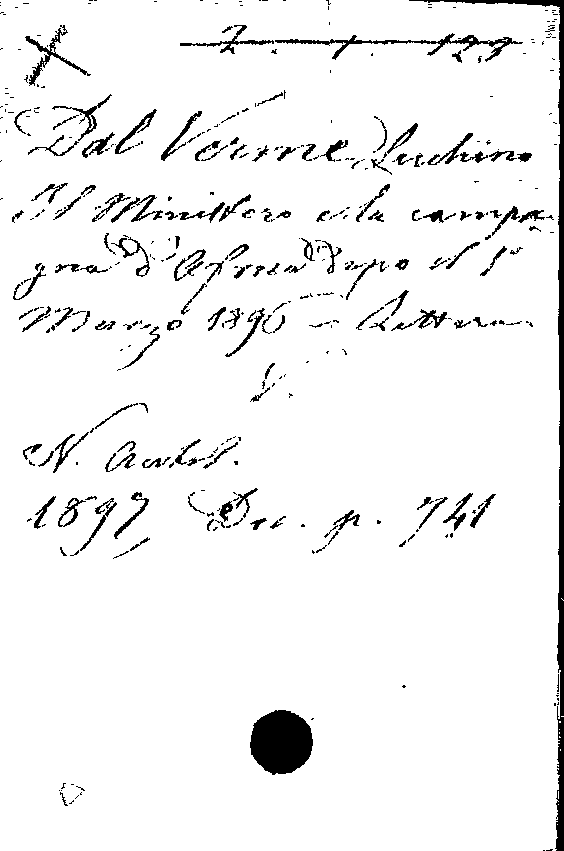 2. 1. 123
Dal Verme Luchino
Il Ministero e la campa-
gna d'Africa dopo il 1º
Marzo 1896 - Lettera.
V.
N. Antol.
1897, Dic. p. 741